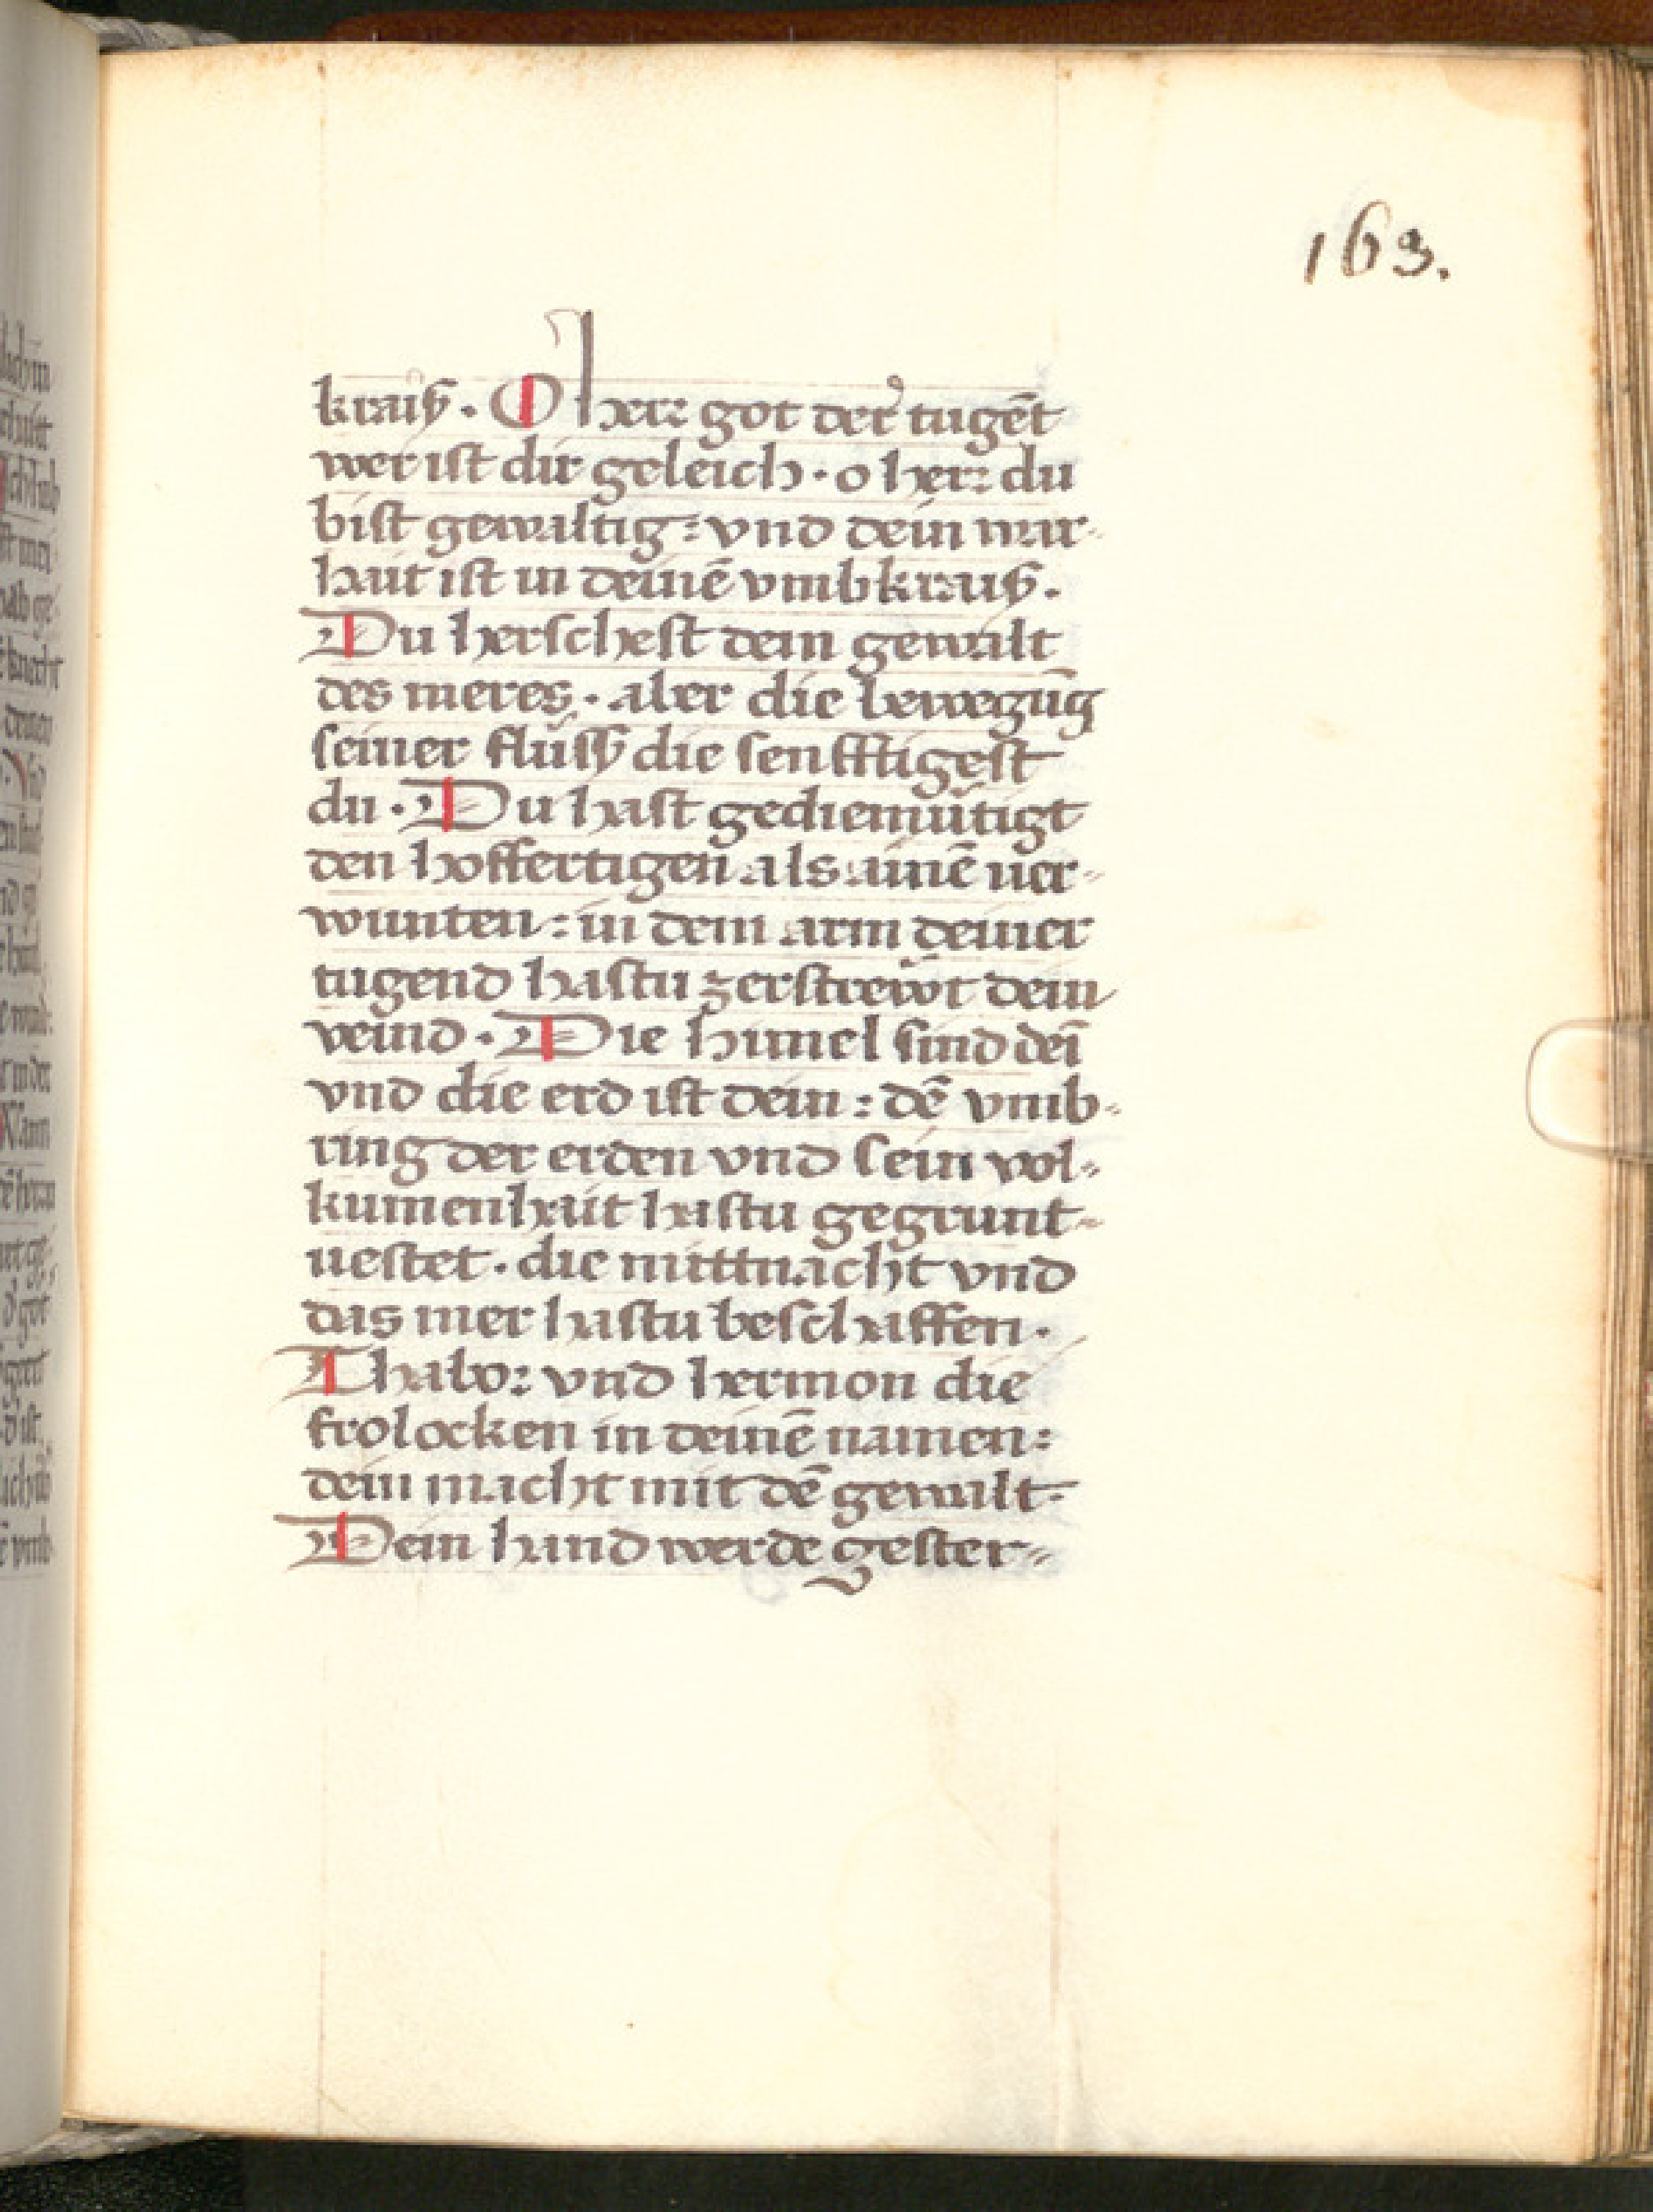 163.
kraiß · O herr got der tugēt
wer ist dir geleich · o herr du
bist gewaltig : vnd dein war-
hait ist in deinē vmbkraiß ·
Du herschest dem gewalt
des meres · aber die bewegūg
seiner fluss die senfftigest
du · Du hast gediemütigt
den hoffertigen als ainē uer-
wunten : in dem arm deiner
tugend hastu zerstrewt dein
veind · Die himel sind deī
vnd die erd ist dein : dē vmb-
ring der erden vnd sein vol-
kumenhait hastu gegrunt-
uestet · die mittnacht vnd
das mer hastu beschaffen ·
Thabor vnd hermon die
frolocken in deinē namen :
dein macht mit dē gewalt ·
Dein hand werde gester-